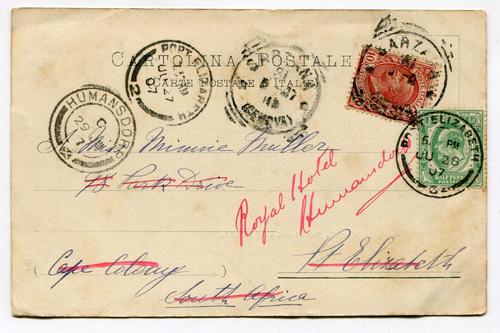 CARTOLINA POSTALE
CARTE POSTALE D'ITALIE
PORT ELIZABETH
JU 27
07
2
SARZANA
(GENOVA)
SARZANA
HUMANSDORP
C
JU 29
7
PORT ELIZABETH
5 PM
JU 28
07
HALFPENNY
Miss Minnie Muller
Park Drive
Royal Hotel
Humansdorp
Pt Elizabeth
Cape Colony
South Africa